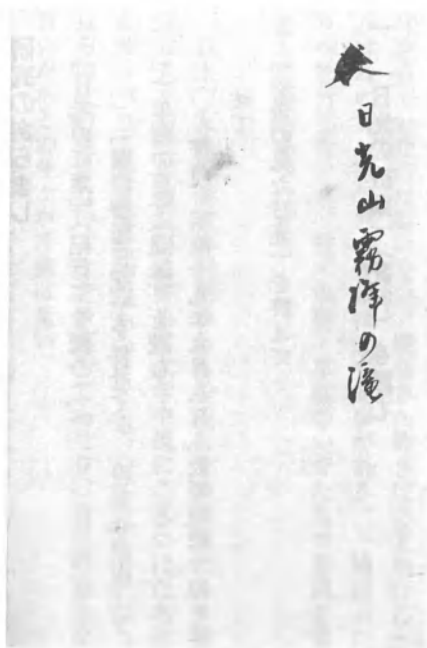 日光山霧降の滝